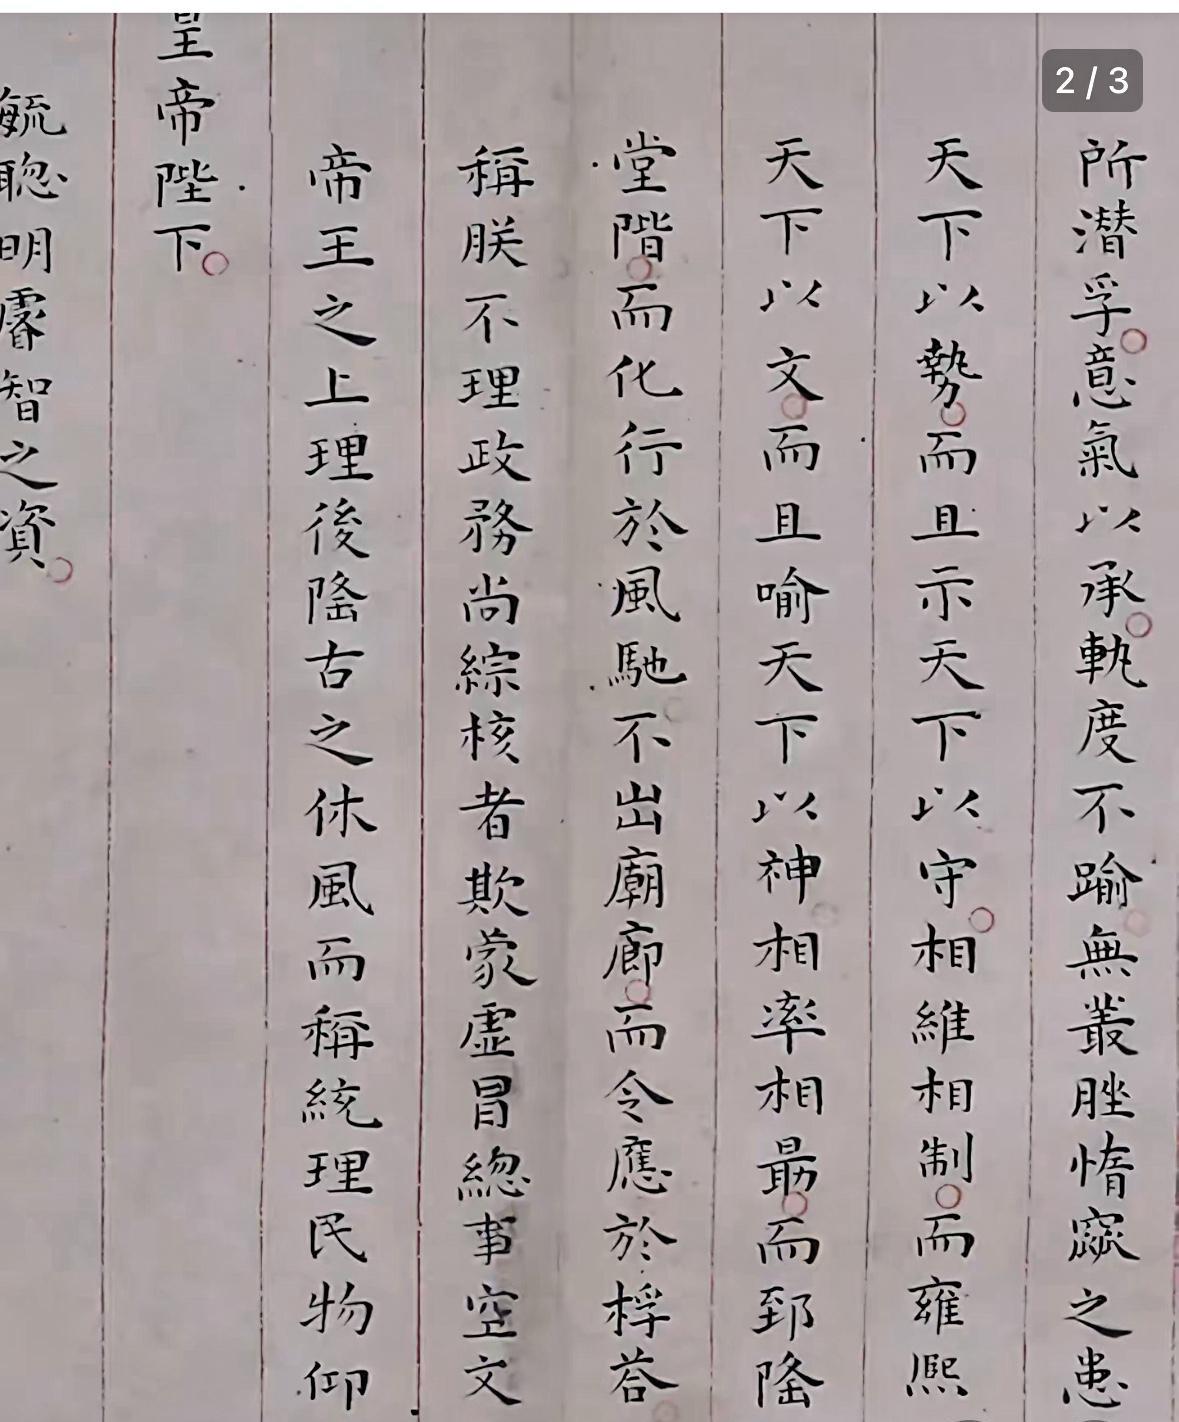 2 / 3
所潜孚意氣以承執度不踰無叢脞惰窳之患
天下以勢而且示天下以守相維相制而雍熈
天下以文而且喻天下以神相率相勗而郅隆
堂階而化行於風馳不出廟廊而令應於桴荅
稱朕不理政務尚綜核者欺蒙虛冒總事空文
帝王之上理後隆古之休風而稱統理民物仰
皇帝陛下
毓聦明睿智之資